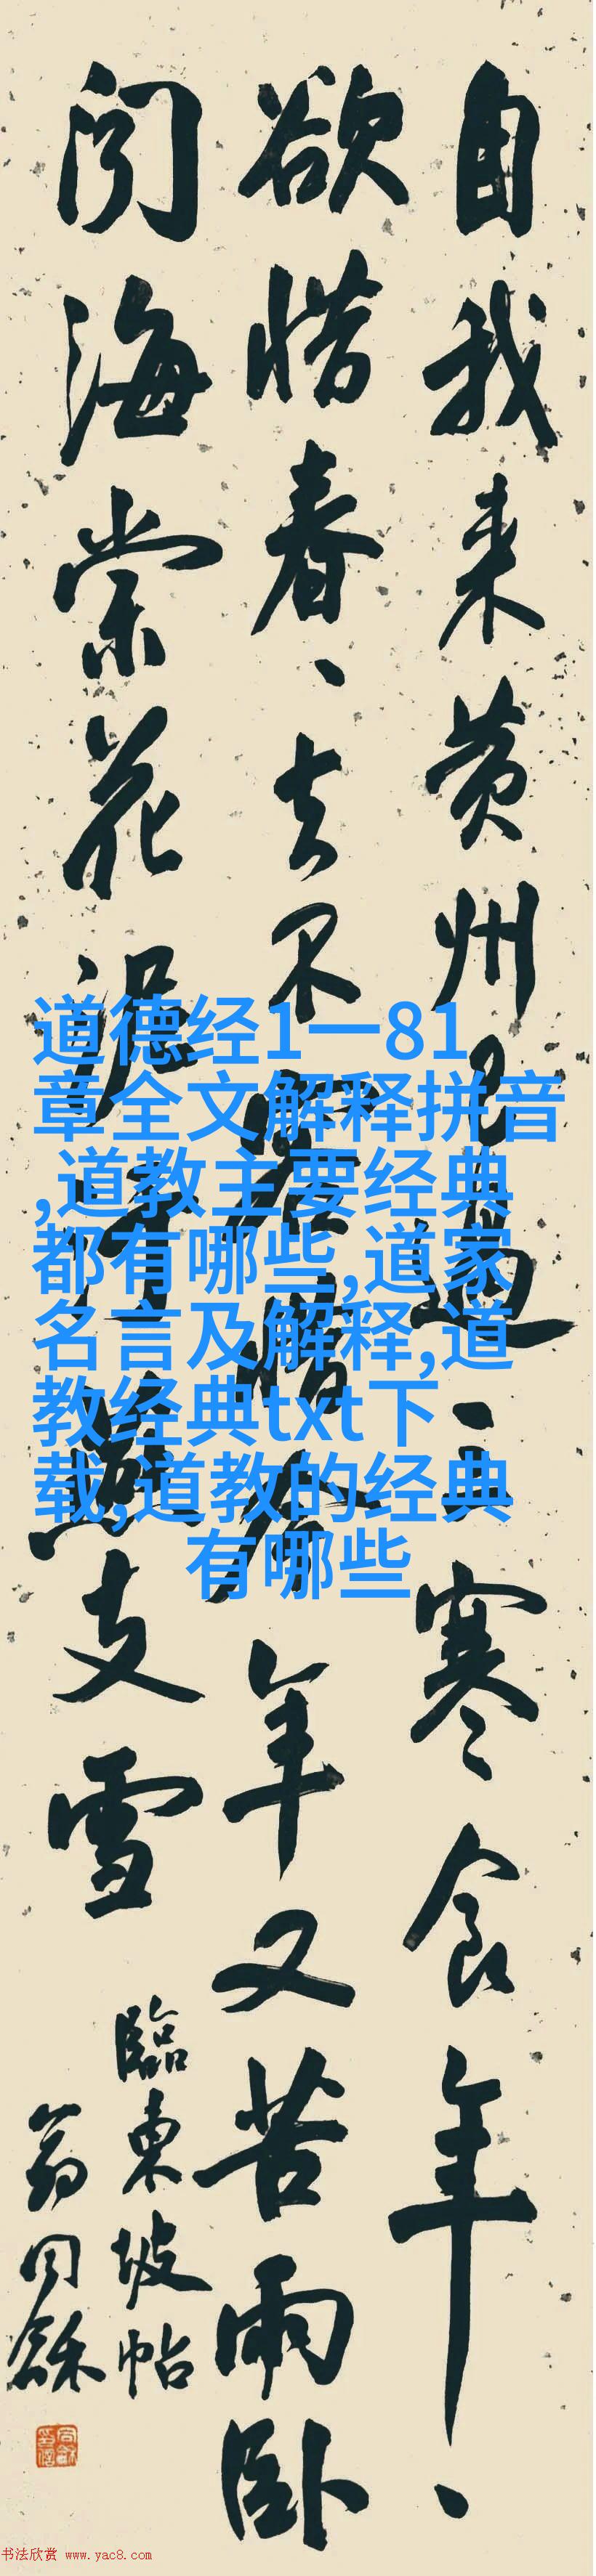 自我来黄州已過三寒食年、
欲惜春、去不容惜今年又苦雨卧
闻海棠花泥污燕支雪
臨東坡帖
翁同龢
道德经1一81
章全文解释拼音
,道教主要经典
都有哪些,道家
名言及解释,道
教经典txt下
载,道教的经典
有哪些
书法欣赏 www.yac8.com